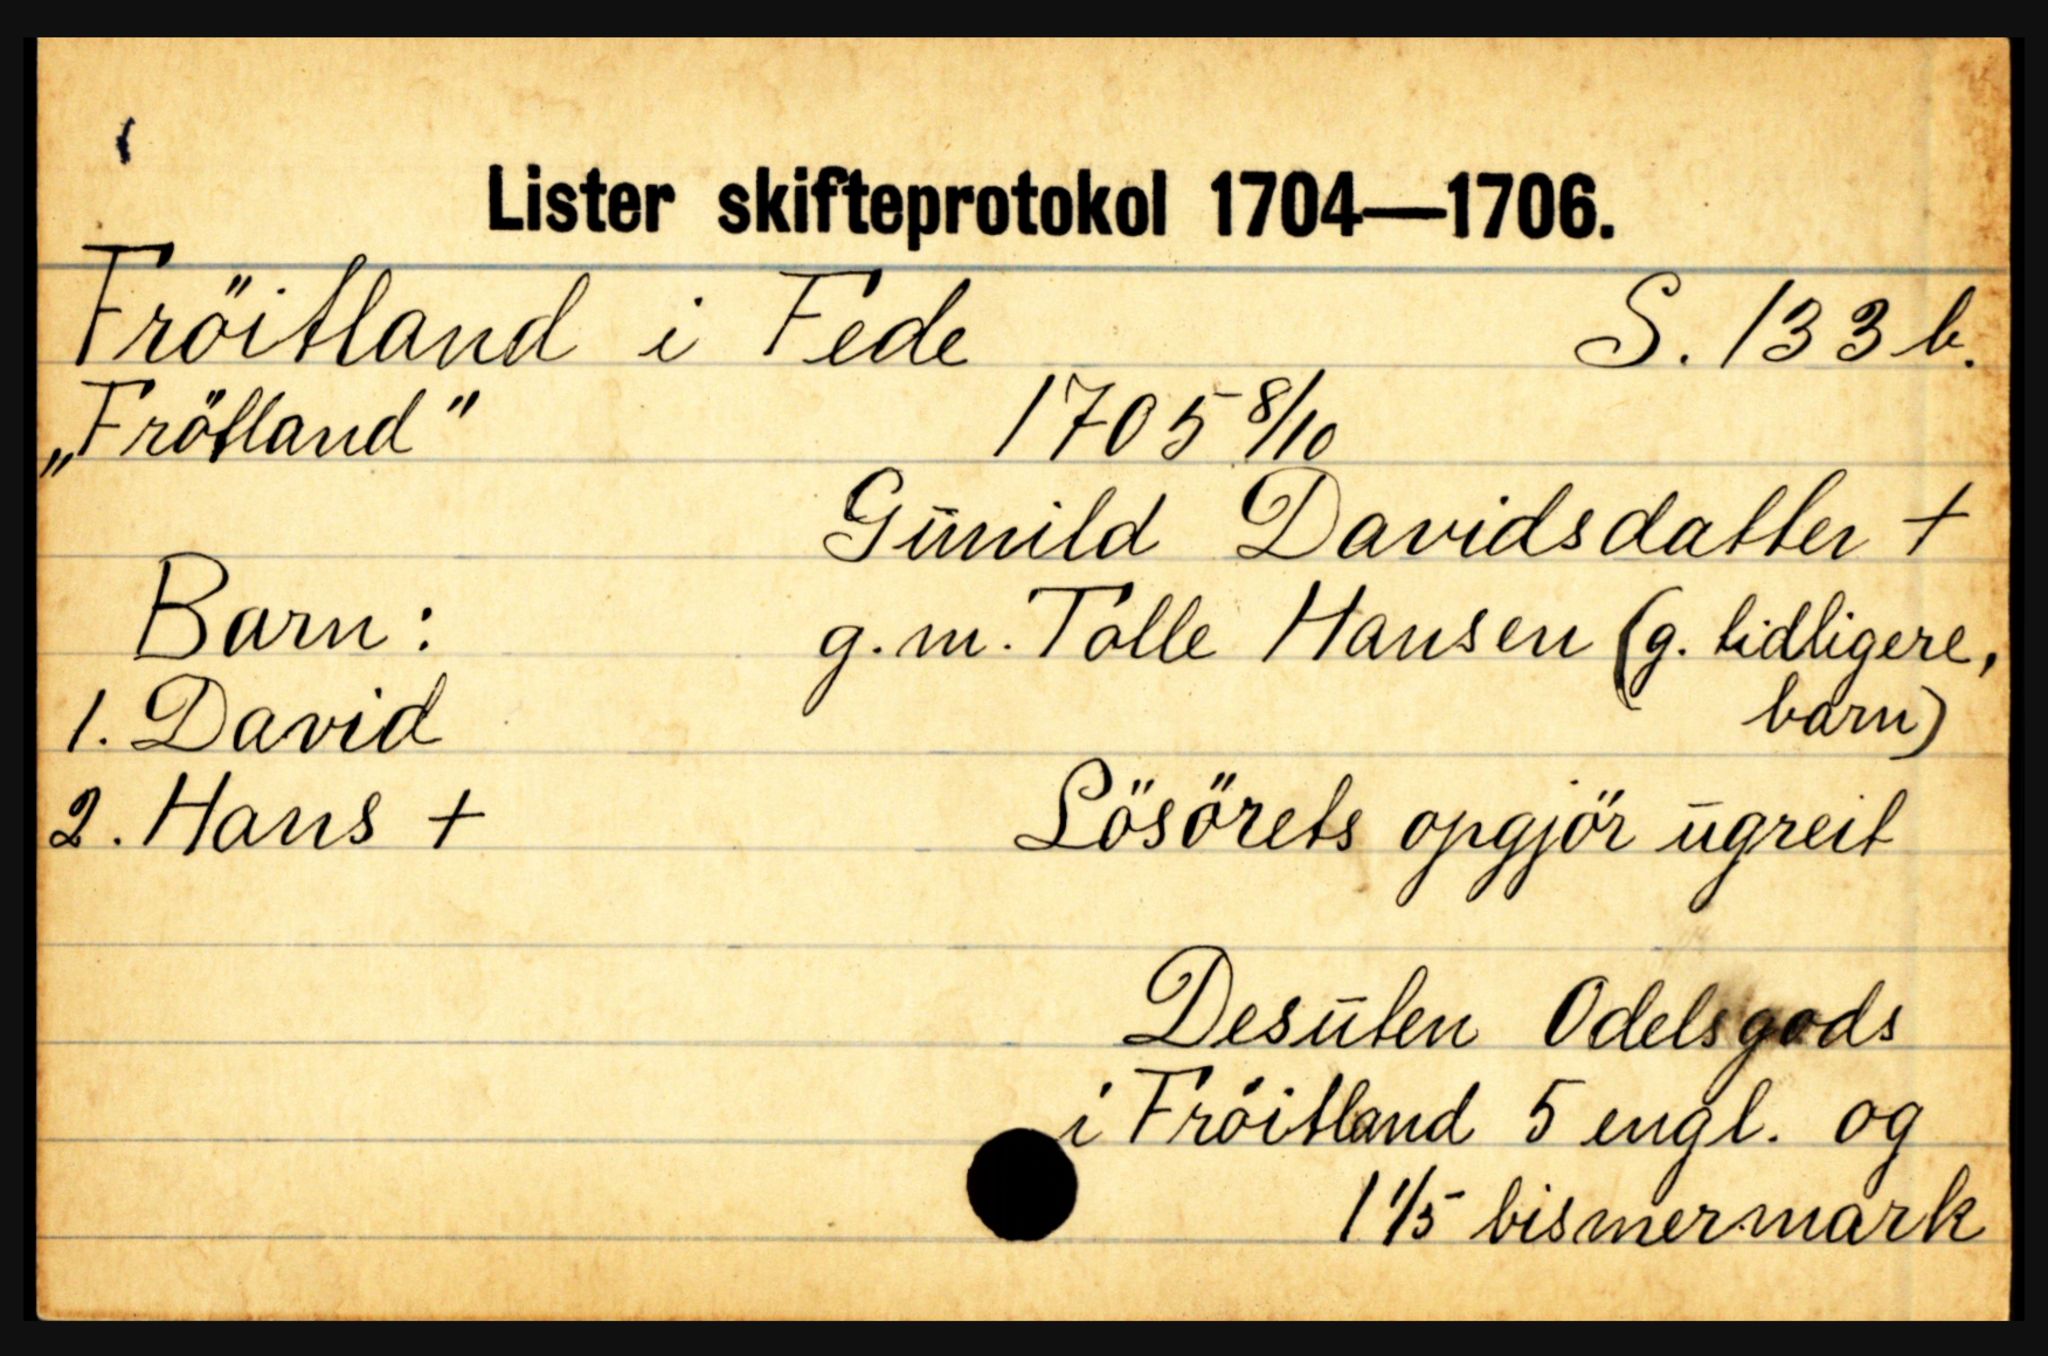 Lister skifteprotokol 1704—1706.
Fröitland i Fede S. 133 b.
„Frötland" 1705 8/10
Gūnild Davidsdatter +
Barn: g.m. Tolle Hansen (g. tidligere,
barn)
1. David
2. Hans + Lösörets opgjör ūgreit
Desūten Odelsgods
i Fröitland 5 engl. og
1 1/5 bismermark